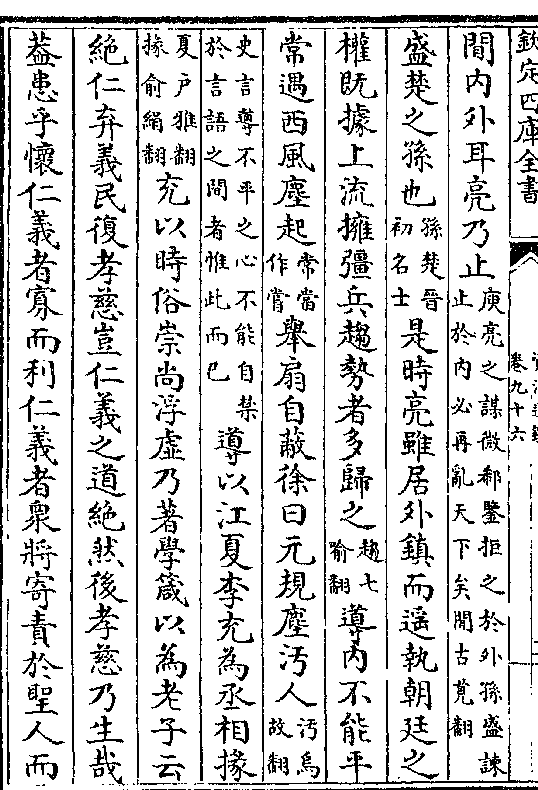 欽定四庫全書
卷九十六
間内外耳亮乃止庾亮之謀微郗鑒拒之於外孫盛諫止於内必再亂天下矣間古莧翻
盛楚之孫也孫楚晉初名士是時亮雖居外鎮而遥執朝廷之
權既據上流擁彊兵趨勢者多歸之趨七喻翻導内不能平
常遇西風塵起常當作嘗舉扇自蔽徐曰元規塵汚人汚烏故翻
史言導不平之心不能自禁於言語之間者惟此而已導以江夏李充為丞相掾
夏戸雅翻掾俞絹翻充以時俗崇尚浮虚乃著學箴以為老子云
絶仁弃義民復孝慈豈仁義之道絶然後孝慈乃生哉
葢患乎懷仁義者寡而利仁義者衆將寄責於聖人而